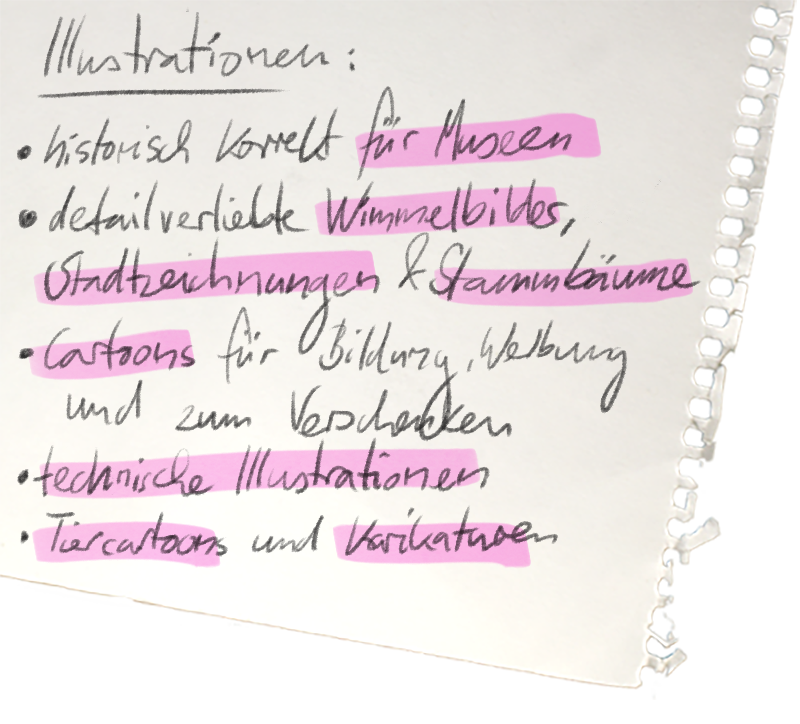 Illustrationen:
• historisch korrekt für Museen
• detailverliebte Wimmelbilder,
Stadtzeichnungen & Stammbäume
• Cartoons für Bildung, Werbung
und zum Verschenken
• technische Illustrationen
• Tiercartoons und Karikaturen